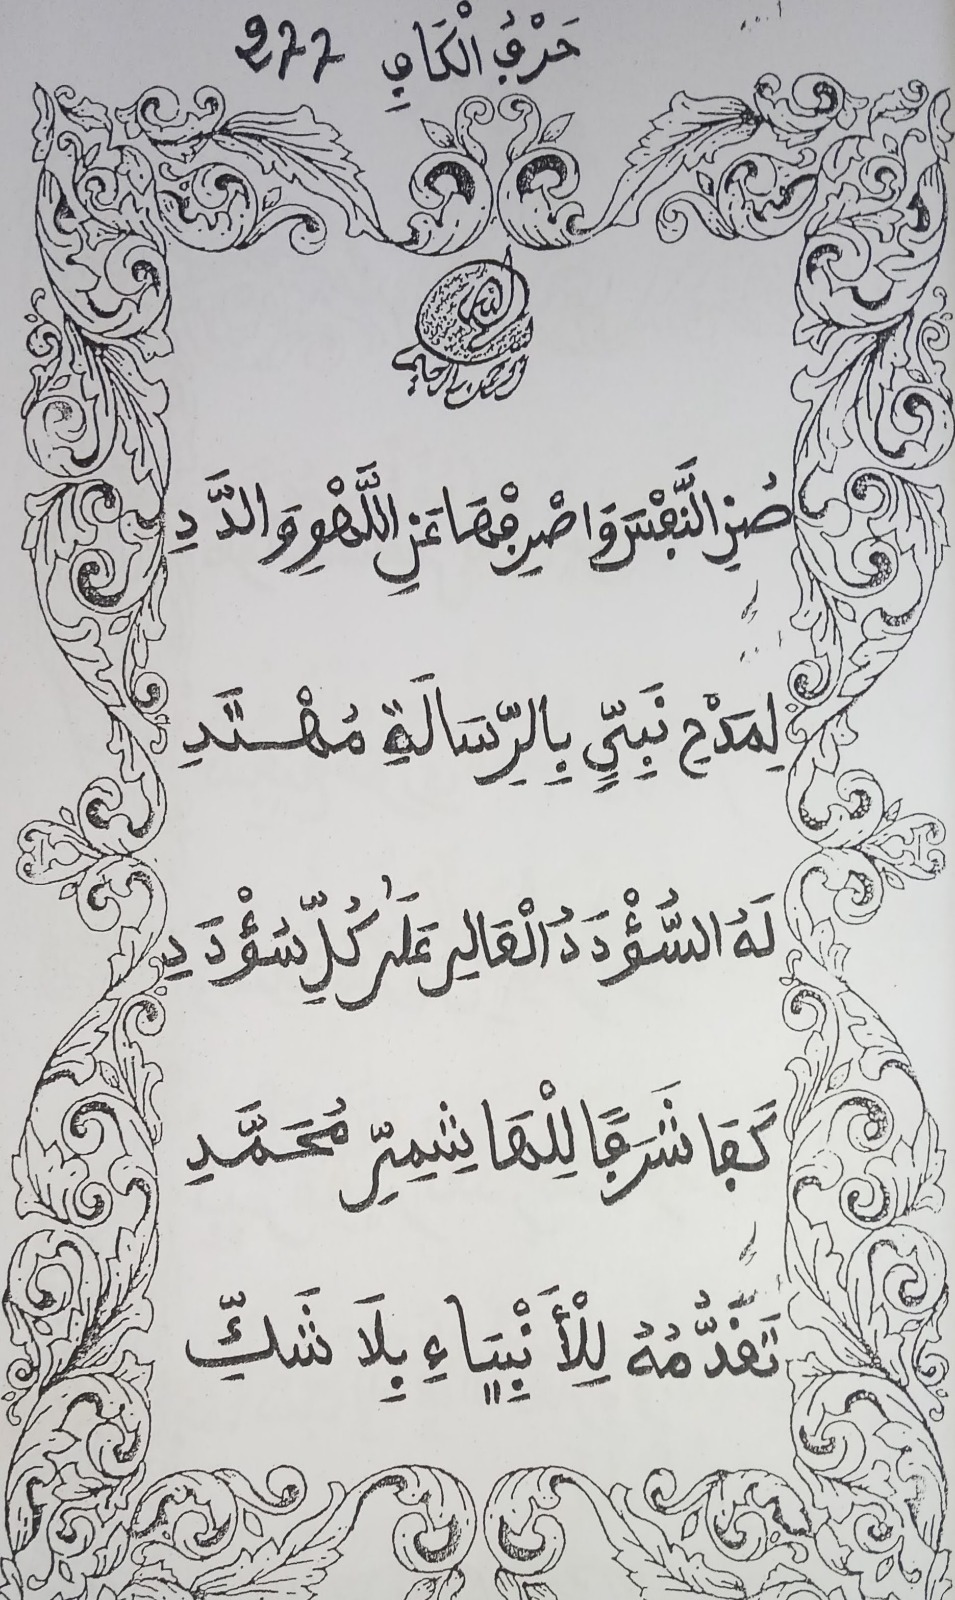 حَرْفُ الْكَافِ 277
صُنِ النَّفْسَ وَاصْرِفْهَا عَنِ اللَّهْوِ وَالدَّدِ
لِمَدْحِ نَبِيٍّ بِالرِّسَالَةِ مُهْتَدِ
لَهُ السُّؤْدَدُ الْعَالِي عَلَى كُلِّ سُؤْدَدِ
كَفَى شَرَفًا لِلْهَاشِمِيِّ مُحَمَّدِ
تَقَدُّمُهُ لِلْأَنْبِيَاءِ بِلَا شَكِّ